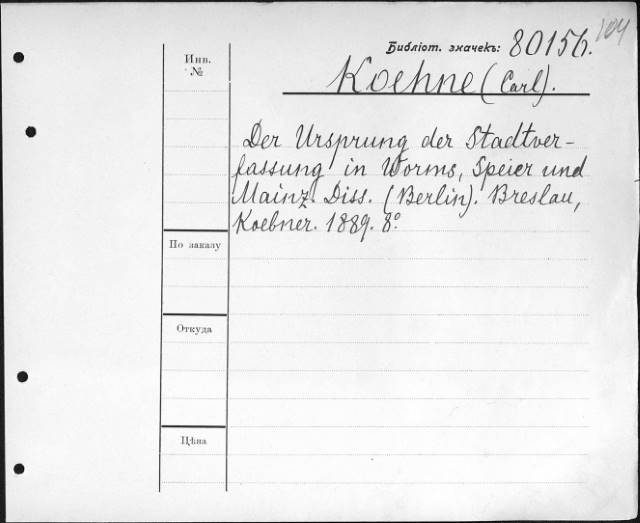 104
Библіот. значекъ: 80156.
Koehne (Carl).
Инв.
№
Der Ursprung der Stadtver-
fassung in Worms, Speier und
Mainz. Diss. (Berlin). Breslau,
Koebner. 1889. 8°.
По заказу
Откуда
Цѣна